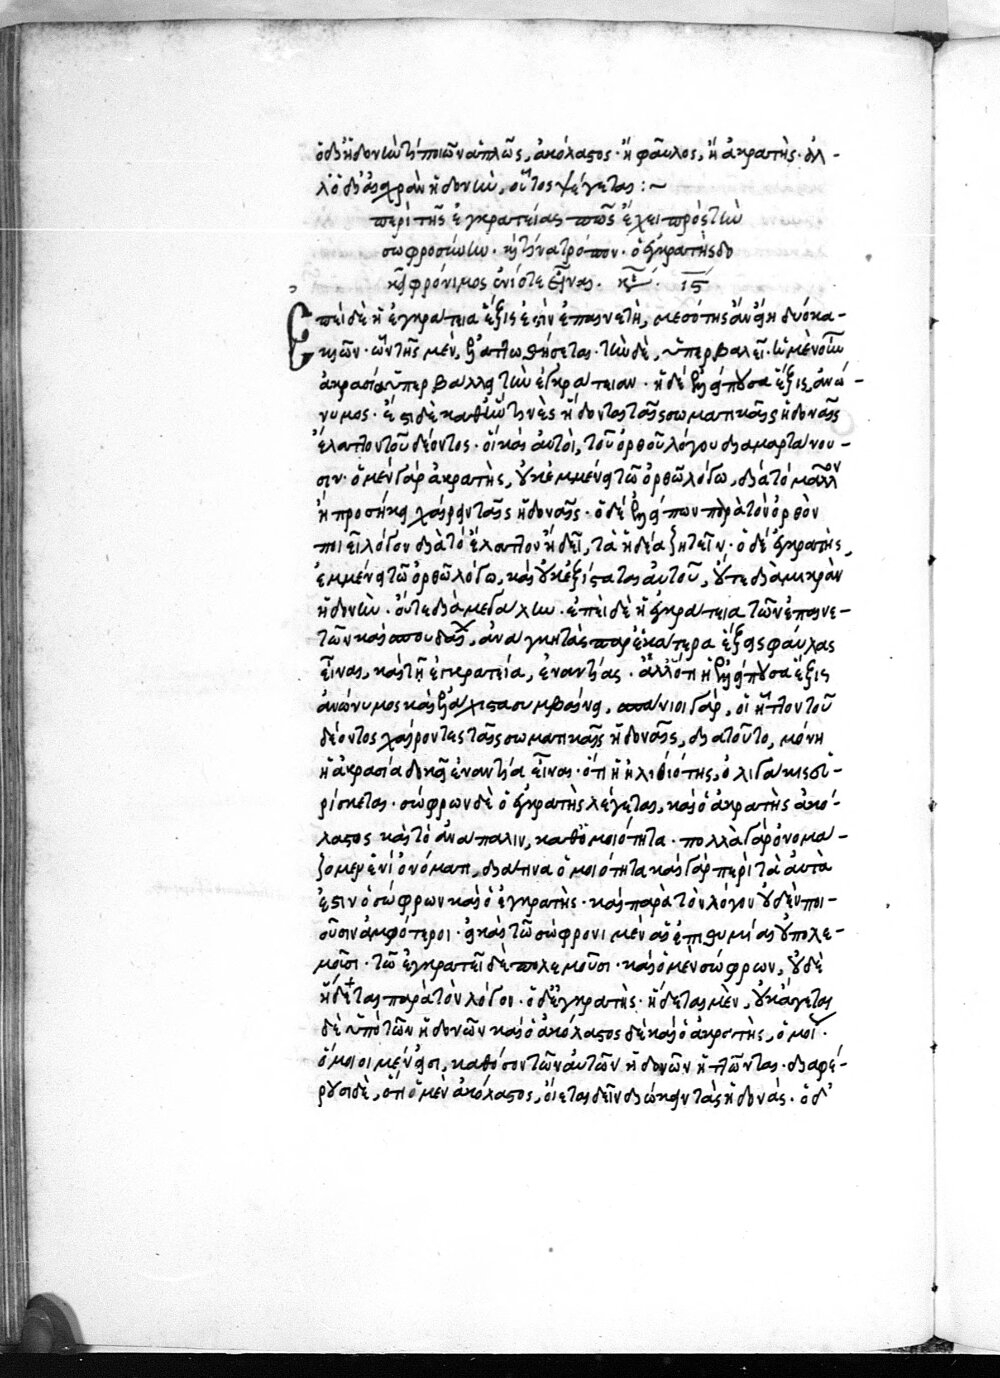 ὁ δι' ἡδονήν τι ποιῶν ἁπλῶς, ἀκόλαστος· ἢ φαῦλος, ἢ ἀκρατὴς· ἀλ -
λ' ὁ δι' αἰσχρὰν ἡδονὴν, οὗτος ψέγεται :~
περὶ τῆς ἐγκρατείας πῶς ἔχει πρὸς τὴν
σωφροσύνην. καὶ τίνα τρόπον. ὁ ἐγκρατὴς δο
κεῖ φρόνιμος ἐνίοτε εἶναι. κε. ιϛ
Ἐπεὶ δὲ ἡ ἐγκράτεια ἕξις ἐστὶν ἐπαινετὴ, μεσότης ἂν εἴη δύο κα -
κιῶν· ὧν τῆς μὲν, ἐξ ηττωθήσεται· τὴν δὲ, ὑπερβαλεῖ. ἡ μὲν οὖν
ἀκρασία ὑπερβάλλει τὴν ἐγκράτειαν. ἡ δὲ ἐλλείπουσα ἕξις, ἀνώ -
νυμος. ἔστι δὲ καθ' ἥν τινὲς ἥδονται ταῖς σωματικαῖς ἡδοναῖς
ἔλαττον τοῦ δέοντος. οἳ καὶ αὐτοὶ, τοῦ ὀρθοῦ λόγου διαμαρτάνου -
σιν· ὁ μὲν γὰρ ἀκρατὴς, οὐκ ἐμμένει τῶ ὀρθῶ λόγω, διὰ τὸ μᾶλλον
ἢ προσήκει χαίρειν ταῖς ἡδοναῖς. ὁ δὲ ἐλλείπων παρὰ τὸν ὀρθὸν
ποιεῖ λόγον διὰ τὸ ἔλαττον ἢ δεῖ, τὰ ἡδέα ζητεῖν. ὁ δὲ ἐγκρατὴς,
ἐμμένει τῶ ὀρθῶ λόγω, καὶ οὐκ ἐξίσταται αὐτοῦ, οὔτε διὰ μικρὰν
ἡδονὴν. οὔτε διὰ μεγάλην. ἐπεὶ δὲ ἡ ἐγκράτεια τῶν ἐπαινε -
τῶν καὶ σπουδαί, ἀνάγκη τὰς παρ' ἑκάτερα ἕξεις φαύλας
εἶναι, καὶ τῇ ἐγκρατεία, ἐναντίας. ἀλλ' ὅτι ἡ ἐλλείπουσα ἕξις
ἀνώνυμος καὶ ἐλάχιστα συμβαίνει, σπάνιοι γὰρ, οἱ ἧττον τοῦ
δέοντος χαίροντες ταῖς σωματικαῖς ἡδοναῖς, διὰ τοῦτο, μόνη
ἡ ἀκρασία δοκεῖ ἐναντία εἶναι. ὅτι ἡ ἠλιθιότης, ὀλιγάκις εὑ -
ρίσκεται. σώφρων δὲ ὁ ἐγκρατὴς λέγεται, καὶ ὁ ἀκρατὴς ἀκό -
λαστος καὶ τὸ ἀνάπαλιν, καθ' ὁμοιότητα. πολλὰ γὰρ ὀνομά -
ζομεν ἑνὶ ὀνόματι, διά τινα ὁμοιότητα καὶ γὰρ περὶ τὰ αὐτὰ
ἐστιν ὁ σώφρων καὶ ὁ ἐγκρατὴς. καὶ παρὰ τὸν λόγον οὐδὲν ποι -
οῦσιν ἀμφότεροι. εἰ καὶ τῶ σώφρονι μὲν αἱ ἐπιθυμίαι οὐ πολε -
μοῦσι. τῶ ἐγκρατεῖ δὲ πολεμοῦσι. καὶ ὁ μὲν σώφρων, οὐδὲ
ἥδεται παρὰ τὸν λόγον. ὁ δ' ἐγκρατὴς. ἥδεται μὲν, οὐκ ἄγεται
δὲ ὑπὸ τῶν ἡδονῶν καὶ ὁ ἀκόλαστος δὲ καὶ ὁ ἀκρατὴς, ὅμοι.
ὅμοιοι μὲν εἰσι, καθόσον τῶν αὐτῶν ἡδονῶν ἡττῶνται. διαφέ -
ρουσι δὲ, ὅτι ὁ μὲν ἀκόλαστος, οἴεται δεῖν διώκειν τὰς ἡδονάς. ὁ δ'